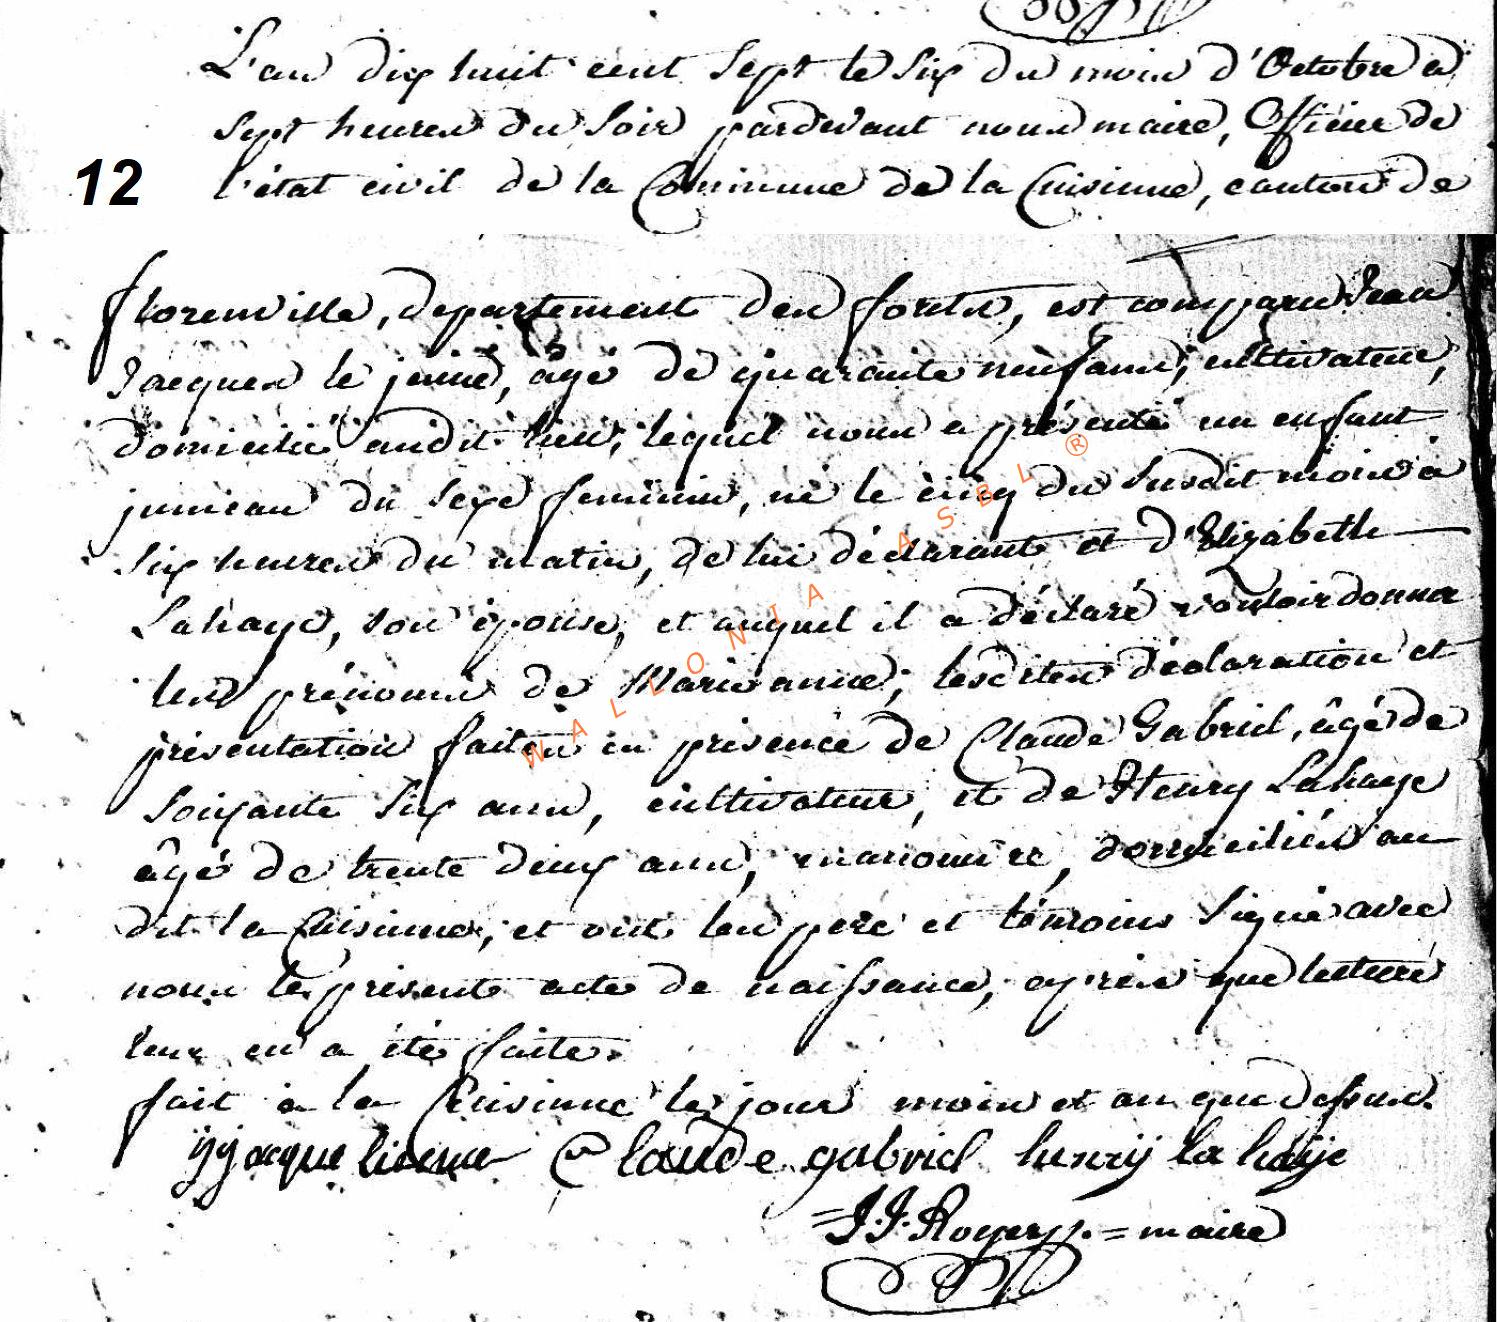 L'an dix huit cent sept le six du mois d'Octobre à
sept heures du soir pardevant nous maire, Officier de
12 l'état civil de la Commune de la Cuisinne, canton de
florenville, departement des forets, est comparu Jean
Jacques le jeune, âgé de quarante neuf ans, cultivateur,
domicilié audit lieu, lequel nous a présenté un enfant
jumeau du sexe feminin, né le cinq du susdit mois à
six heures du matin, de lui déclarant et d'Elizabeth
Lahaye, son épouse, et auquel il a déclaré vouloir donner
les prénoms de Marie anne; lesdites déclaration et
présentation faites en présence de Claude Gabriel, âgé de
soixante six ans, cultivateur, et de Henry Lahaye
âgé de trente deux ans, manouvre, domiciliés au
dit la Cuisinne; et ont les pere et témoins signé avec
nous le présent acte de naissance, après que lecture
leur en a été faite.
fait à la Cuisinne les jour mois et an que dessus.
jjjacque claude gabriel henrij la haije
=J.J. Rogery.= maire
WALLONIA ASBL ®